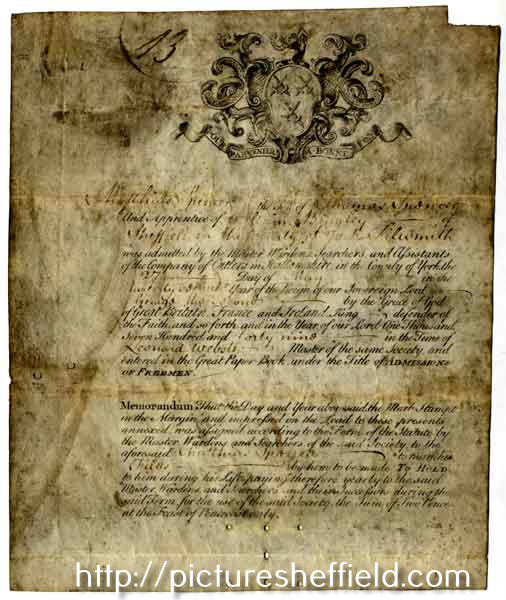 13
POUR PARVENIR A BONNE FOY
Matthias Spencer the Son of Thomas Spencer
And Apprentice of of
Sheffield in the County of York Filesmith
was admitted by the Master Wardens Searchers and Assistants
of the Company of Cutlers in Hallamshire in the County of York the
Day of May in the
Year of the Reign of our Sovereign Lord
George the Second by the Grace of God
of Great Britain France and Ireland King defender of
the Faith and so forth and in the Year of our Lord One Thousand
Seven Hundred and forty nine in the Time of
Leonard Webster Master of the same Society and
entered in the Great Paper Book under the Title of ADMISSIONS
OF FREEMEN.
Memorandum That the Day and Year abovesaid the Mark Stampt
in the Margin and impressed on the Lead to these presents
annexed was assigned according to the Form of the Statute by
the Master Wardens and Searchers of the said Society to the
aforesaid Matthias Spencer to mark his
Files by him to be made TO HOLD
to him during his Life paying therefore yearly to the said
Master Wardens and Searchers and their Successors during the
said Term for the use of the said Society the Sum of Two Pence
at the Feast of Pentecost only.
http://picturesheffield.com